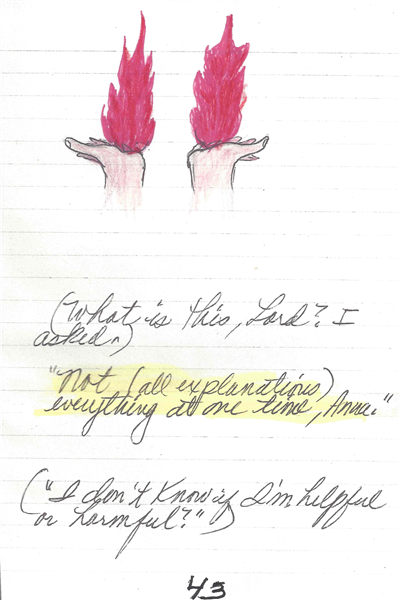 (What is this, Lord? I
asked.)
"Not (all explanations)
everything at one time, Anna."
("I don't know if I'm helpful
or harmful?")
43